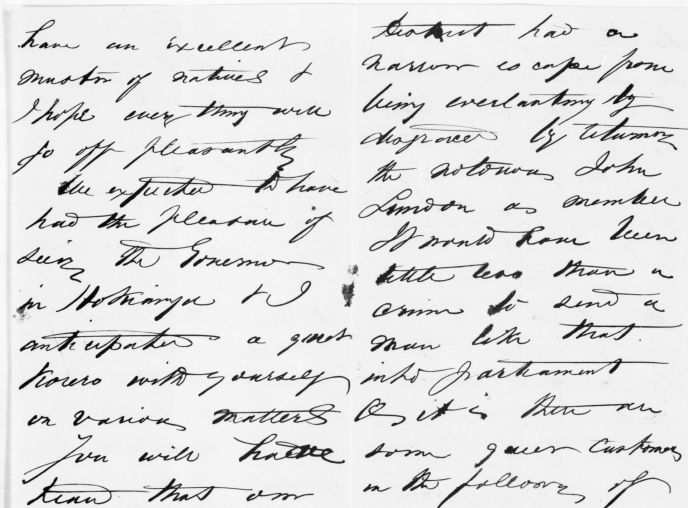 have an excellent
muster of natives &
I hope every thing will
go off pleasantly
We expected to have
had the pleasure of
seeing the Governor
in Hokianga & I
anticipated a quiet
Korero with yourself
on various matters
You will have
heard that our
District had a
narrow escape from
being everlastingly
disgraced by returning
the notorious John
Lundon as member
It would have been
little less than a
crime to send a
man like that
into parliament
As it is there are
some queer customers
in the following of